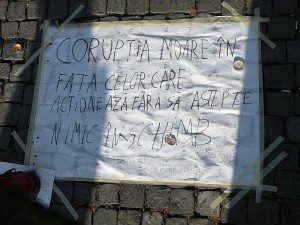 CORUPȚIA MOARE ÎN
FAȚA CELOR CARE
ACȚIONEAZĂ FĂRĂ SĂ AȘTEPTE
NIMIC ÎN SCHIMB